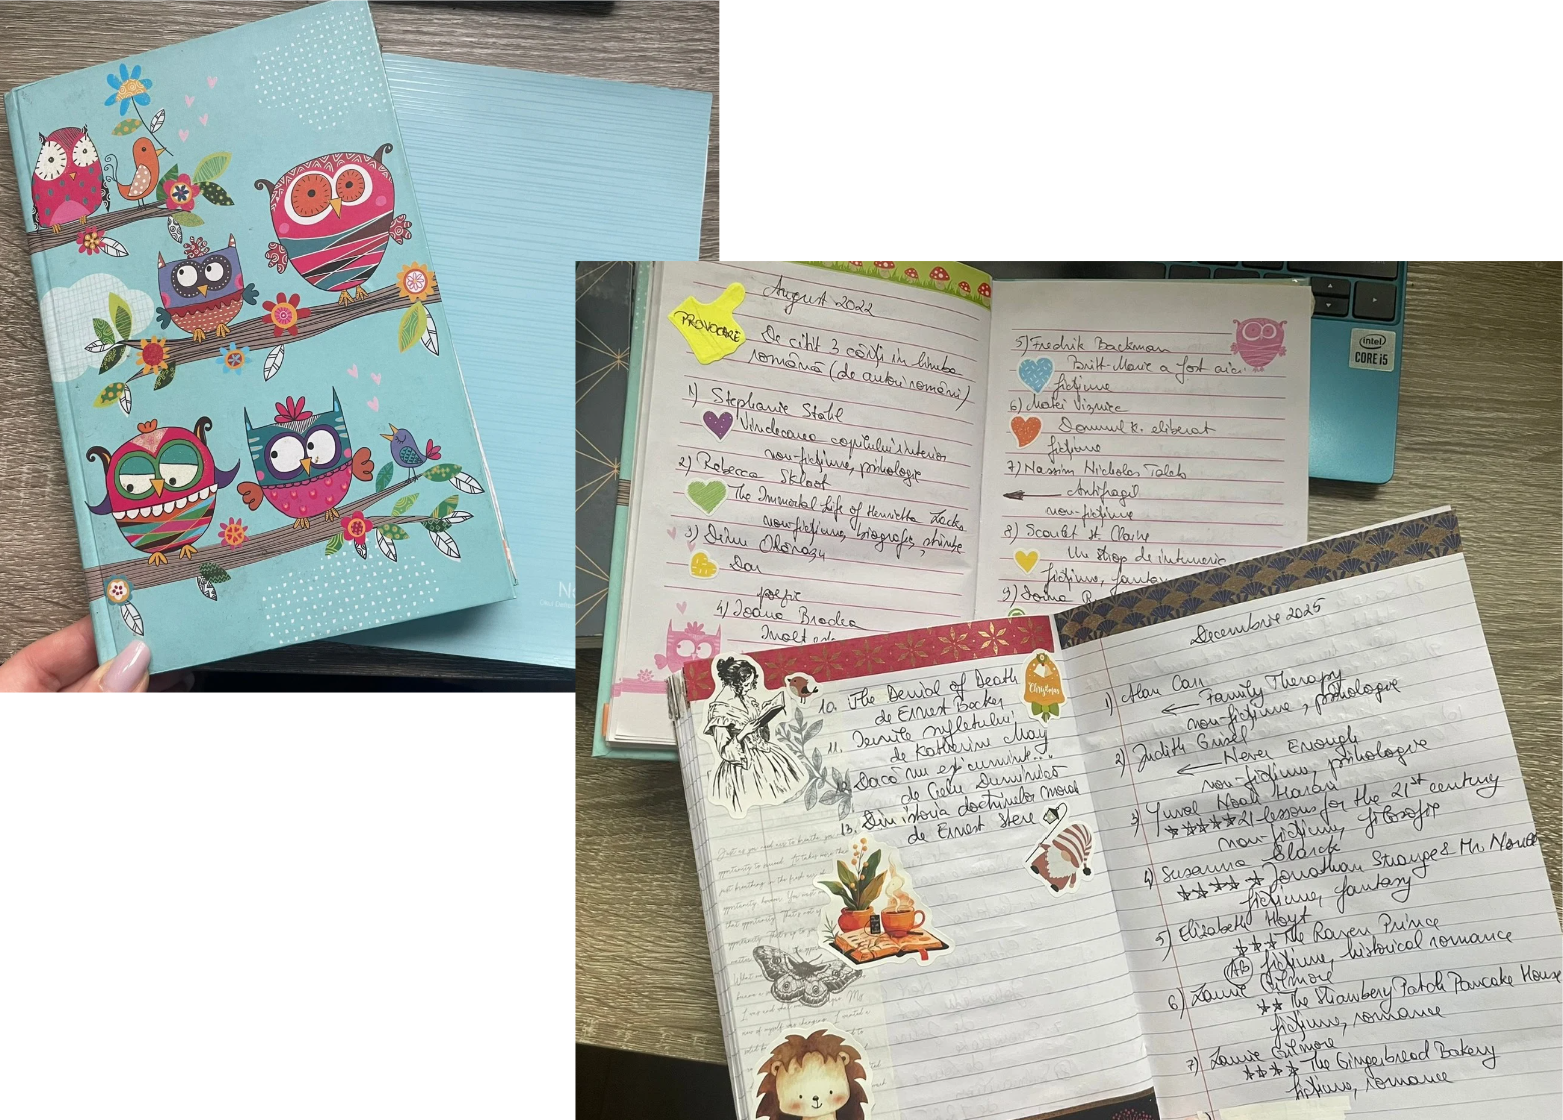 August 2022
PROVOCARE
De citit 3 cărți în limba
română (de autori români)
1) Stephanie Stahl
Vindecarea copilului interior
non-ficțiune, psihologie
2) Rebecca
Skloot
The Immortal Life of Henrietta Lacks
non-ficțiune, biografie, științe
3)
Dor
poezie
4) Ioana
5) Fredrik Backman
Britt-Marie a fost aici
ficțiune
6) Matei Vișniec
Domnul K. eliberat
ficțiune
7) Nassim Nicholas Taleb
Antifragil
non-ficțiune
8) Scarlett St. Clair
Un strop de întuneric
ficțiune,
9) Ioana
intel
CORE i5
10. The Denial of Death
de Ernest Becker
11. Iernile sufletului
de Katherine May
12. Dacă nu e
de
13. Din istoria doctrinelor morale
de Ernest Stere
Christmas
Decembrie 2025
1) Alan Carr
Family Therapy
non-ficțiune, psihologie
2) Judith
Never Enough
non-ficțiune, psihologie
3) Yuval Noah Harari
21 lessons for the 21st century
non-ficțiune, filosofie
4) Susanna Clarck
Jonathan Strange & Mr. Norrell
ficțiune, fantasy
5) Elizabeth Hoyt
The Raven Prince
AB ficțiune, historical romance
6) Laurie Gilmore
The Strawbery Patch Pancake House
ficțiune, romance
7) Laurie Gilmore
The Gingerbread Bakery
ficțiune, romance